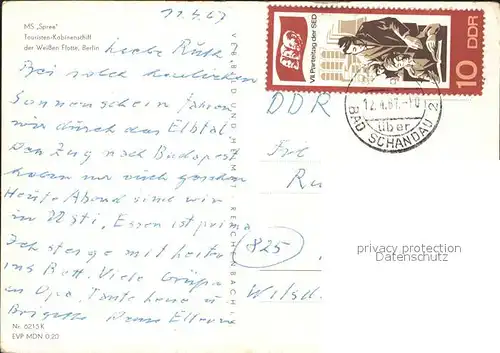 11.4.67
MS „Spree"
Touristen-Kabinenschiff
der Weißen Flotte, Berlin
Liebe Ruth
Bei solch herrlichen
Sonnenschein fahren
wir durch das Elbtal
Den Zug nach Budapest
haben wir auch gesehen
Heute Abend sind wir
in Usti. Essen ist prima
Ich steige mit heiter
ins Bett. Viele Grüße
an Opa, Tante
Brigitte Deine Eltern
Nr. 6215 K
EVP MDN 0,20
VII. Parteitag der SED
10 DDR
12.4.67.-10
über
BAD SCHANDAU 2
DDR
Frl
Ru
825
Wilsd
privacy protection
Datenschutz